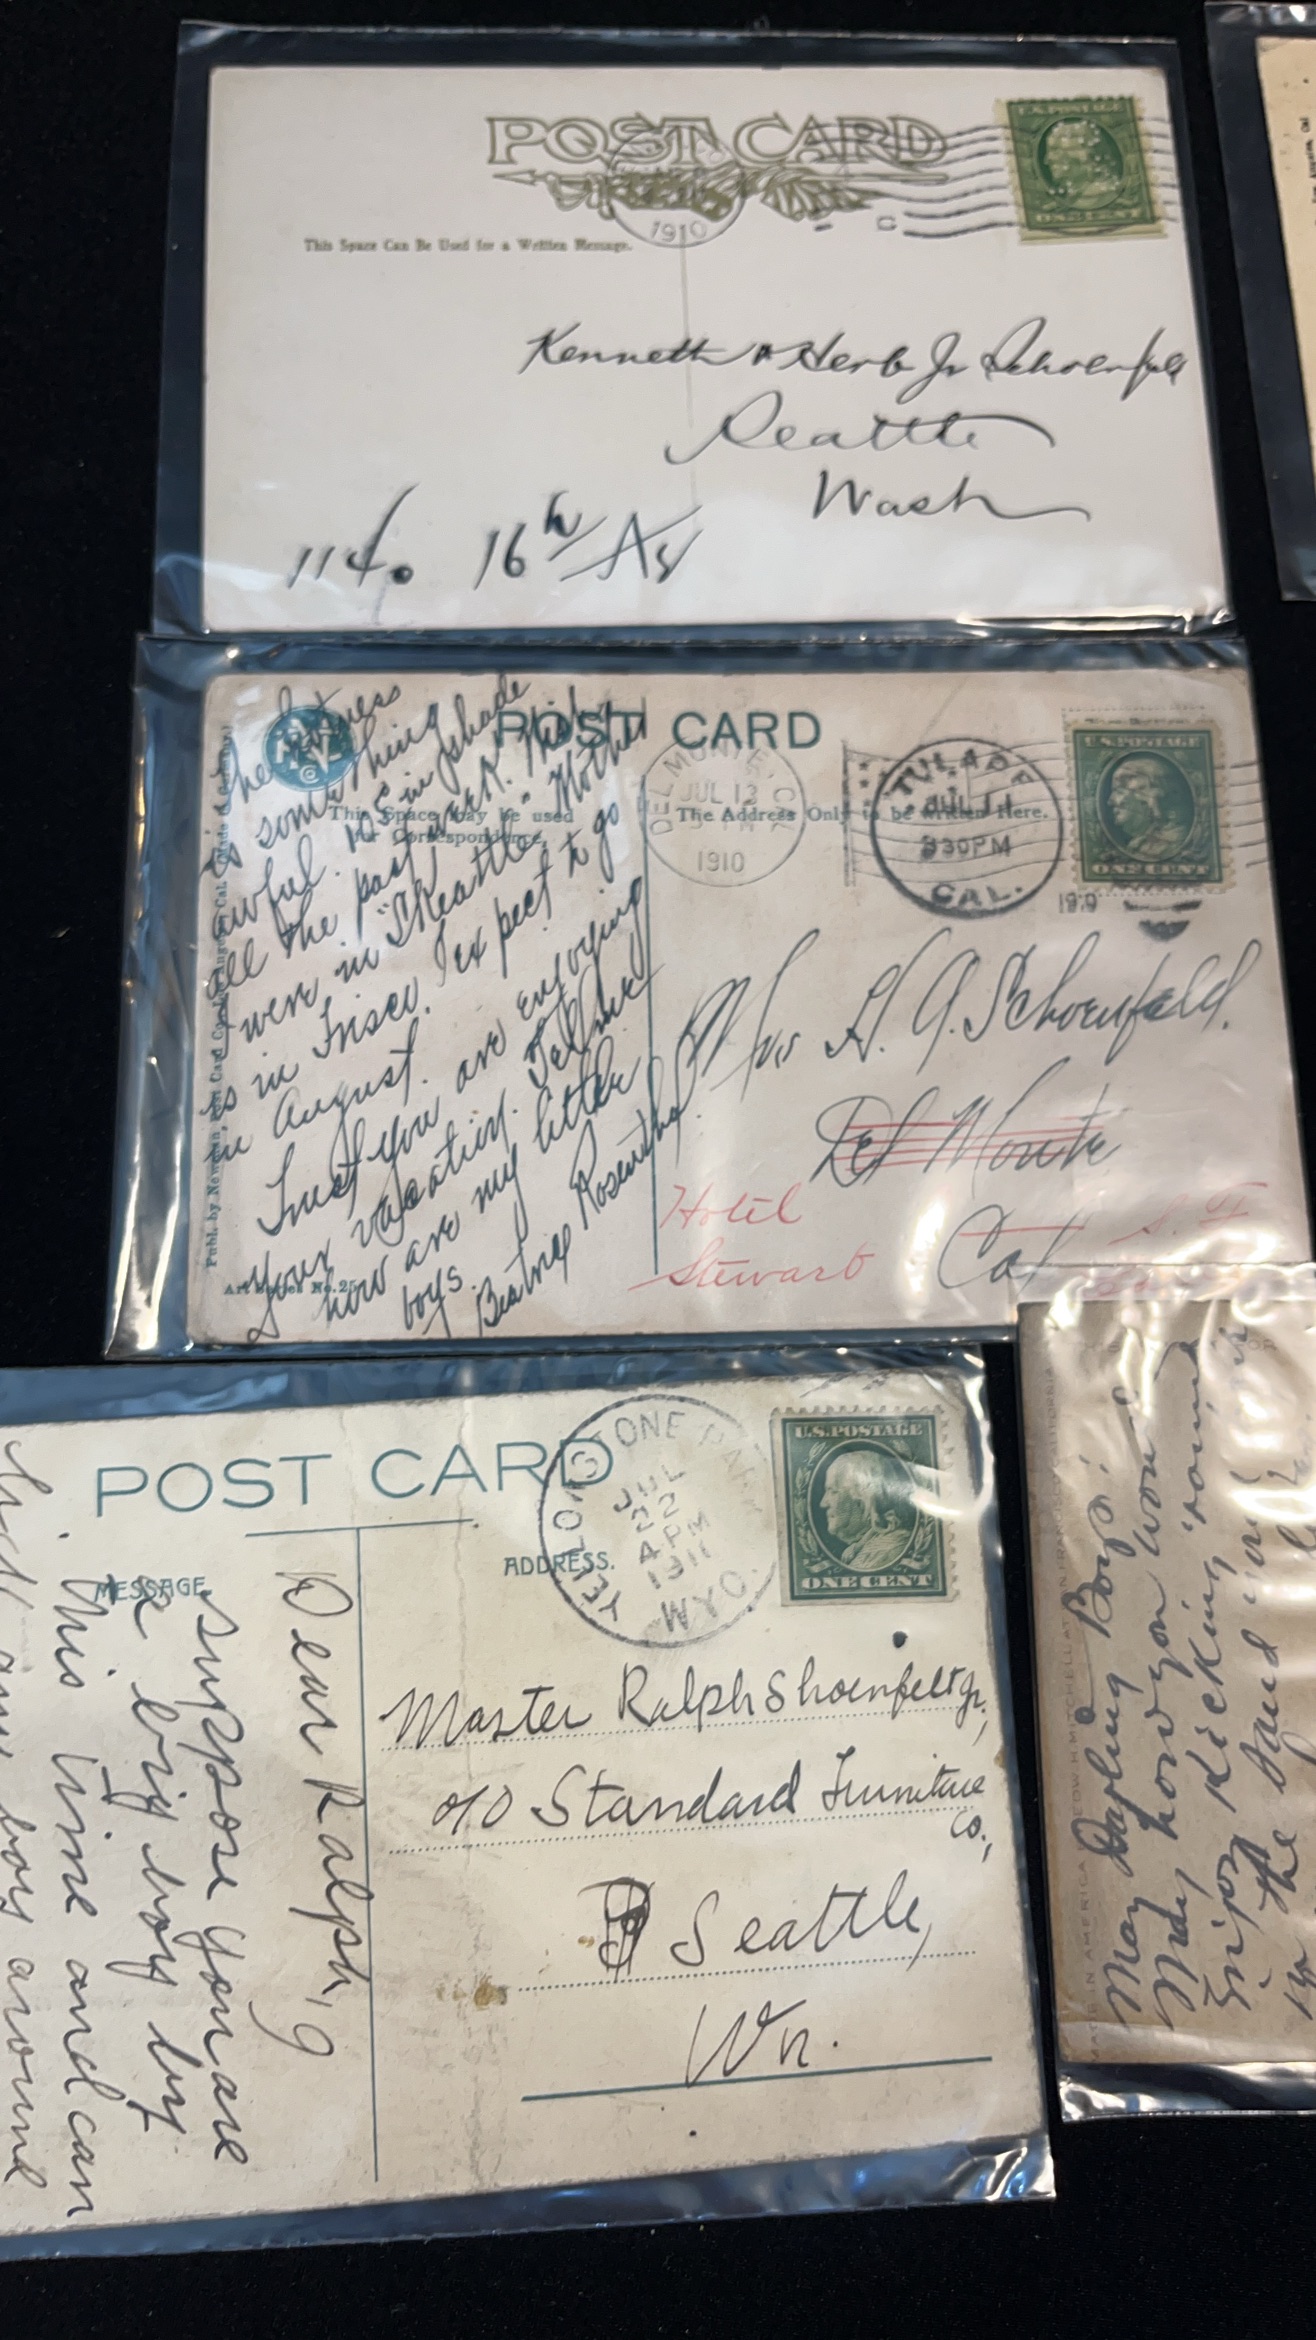 POST CARD
U.S.POSTAGE
ONE CENT
1910
This Space Can Be Used for a Written Message.
Kenneth & Herb Jr Schoenfeld
Seattle
Wash
1140 16th Av
POST CARD
This Space may be used
for Correspondence.
The Address Only to be written Here.
DEL MONTE, CAL
JUL 13
1910
TULARE
JUL 11
830PM
CAL.
1910
U.S.POSTAGE
ONE CENT
The hotness
is something
awful. 105 in shade
all the past week. Wish
I were in "SKeattle." Mother
is in Frisco. I expect to go
in August.
Trust you are enjoying
your vacation. Tell me
how are my little
boys.
Beatrice Rosenthal.
Mrs H. A. Schoenfeld.
Del Monte
Cal
Hotel
Stewart
S. F
Art Series No. 25
POST CARD
MESSAGE
ADDRESS.
YELLOWSTONE PARK
JUL
22
4PM
1911
WYO.
U.S.POSTAGE
ONE CENT
Dear Ralph, I
suppose you are
a big boy by
this time and can
any boy around
Master Ralph Shoenfelt Jr.,
c/o Standard Furniture
Co.,
Seattle,
Wn.
My Darling Boys:
how you would
enjoy kicking 'round
in the sand